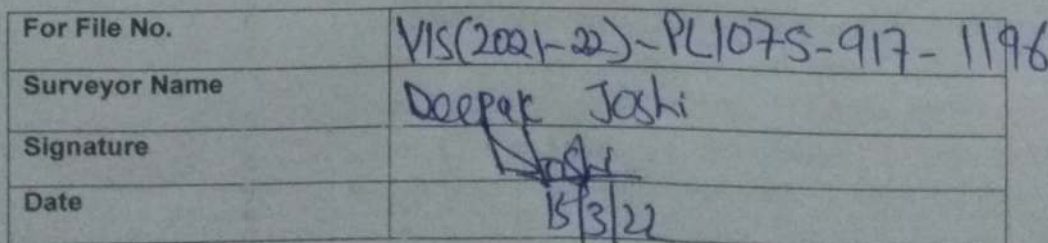 For File No. VIS(2021-22)-PL1075-917-1196
Surveyor Name Deepak Joshi
Signature Joshi
Date 15/3/22